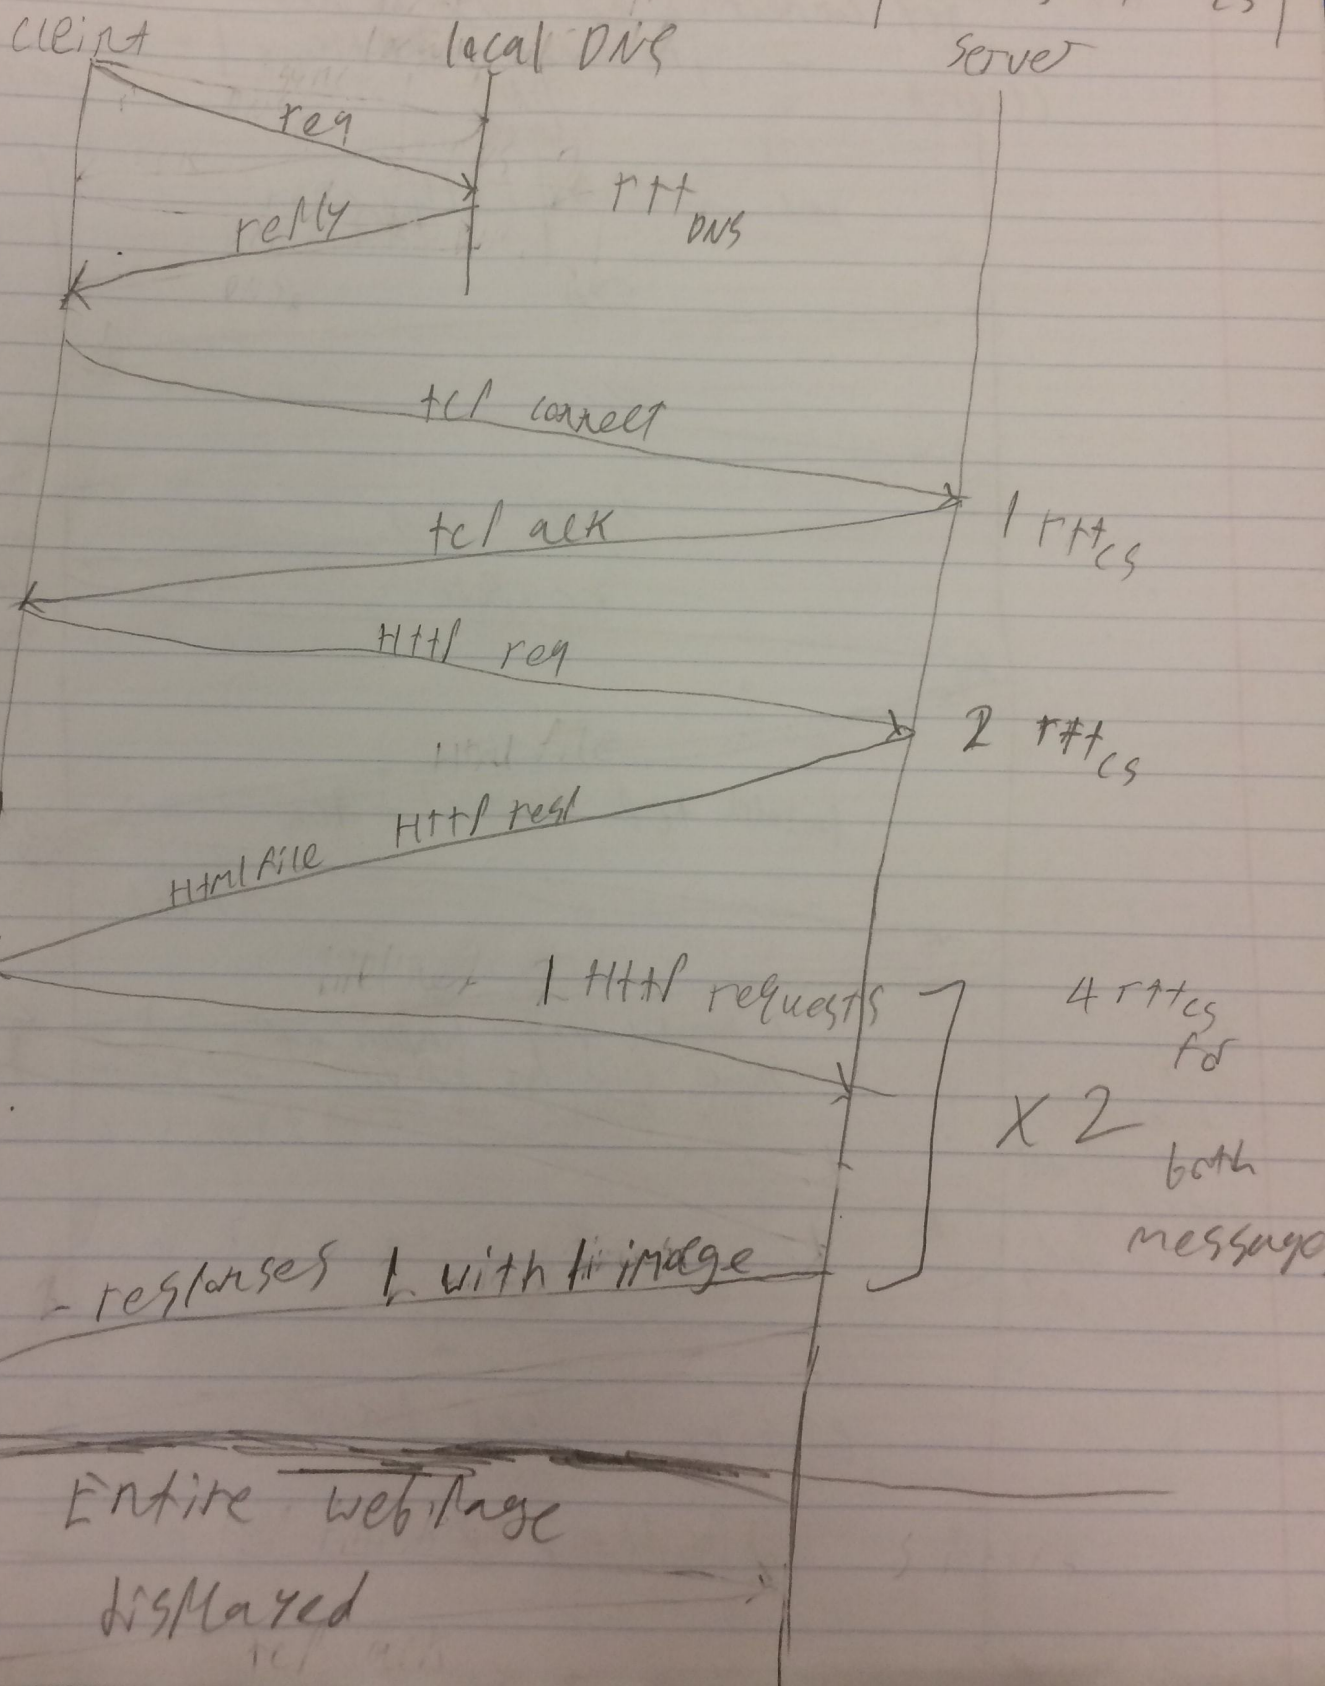 cleint
local DNS
server
req
rtt DNS
reply
tcp connect
tcp ack
1 rtt cs
Http req
2 rtt cs
Http resp
Html file
1 Http requests
4 rtt cs
for
x 2
both
message
- responses 1 with 1 image
Entire webpage
displayed